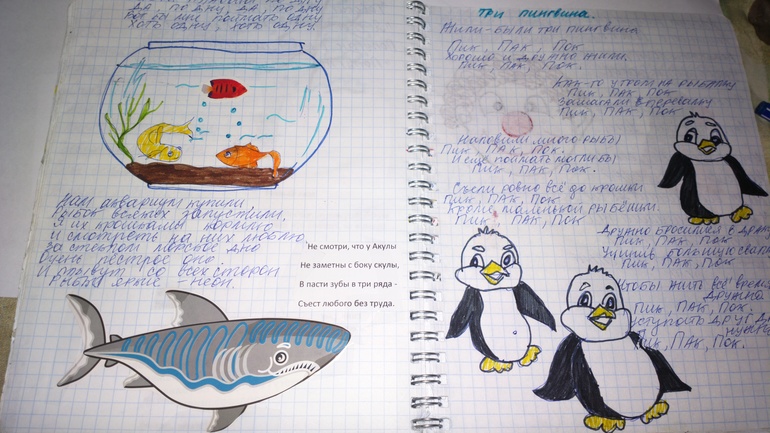 Да, по дну, да, по дну
Вот бы мне поймать одну
Хоть одну, хоть одну.
Нам аквариум купили,
Рыбок всяких запустили,
Я их крошками кормлю
И смотреть на них люблю.
За стеклом морское дно
Очень пёстрое оно.
И плывут со всех сторон
Рыбы яркие - неон.
Не смотри, что у Акулы
Не заметны с боку скулы,
В пасти зубы в три ряда -
Съест любого без труда.
Три пингвина.
Жили-были три пингвина
Пик, Пак, Пок
Хорошо и дружно жили.
Пик, Пак, Пок.
Как-то утром на рыбалку
Пик, Пак, Пок
Зашагали вперевалку
Пик, Пак, Пок
Наловили много рыбы
Пик, Пак, Пок.
И ещё поймать могли бы
Пик, Пак, Пок.
Съели ровно всё до крошки
Пик, Пак, Пок
Кроме маленькой рыбёшки.
Пик, Пак, Пок
Дружно бросились в
Пик, Пак, Пок.
Учинив большую
Пик, Пак, Пок
Чтобы жить всё время
дружно
Пик, Пак, Пок.
Уступать друг
Пик, Пак, Пок.